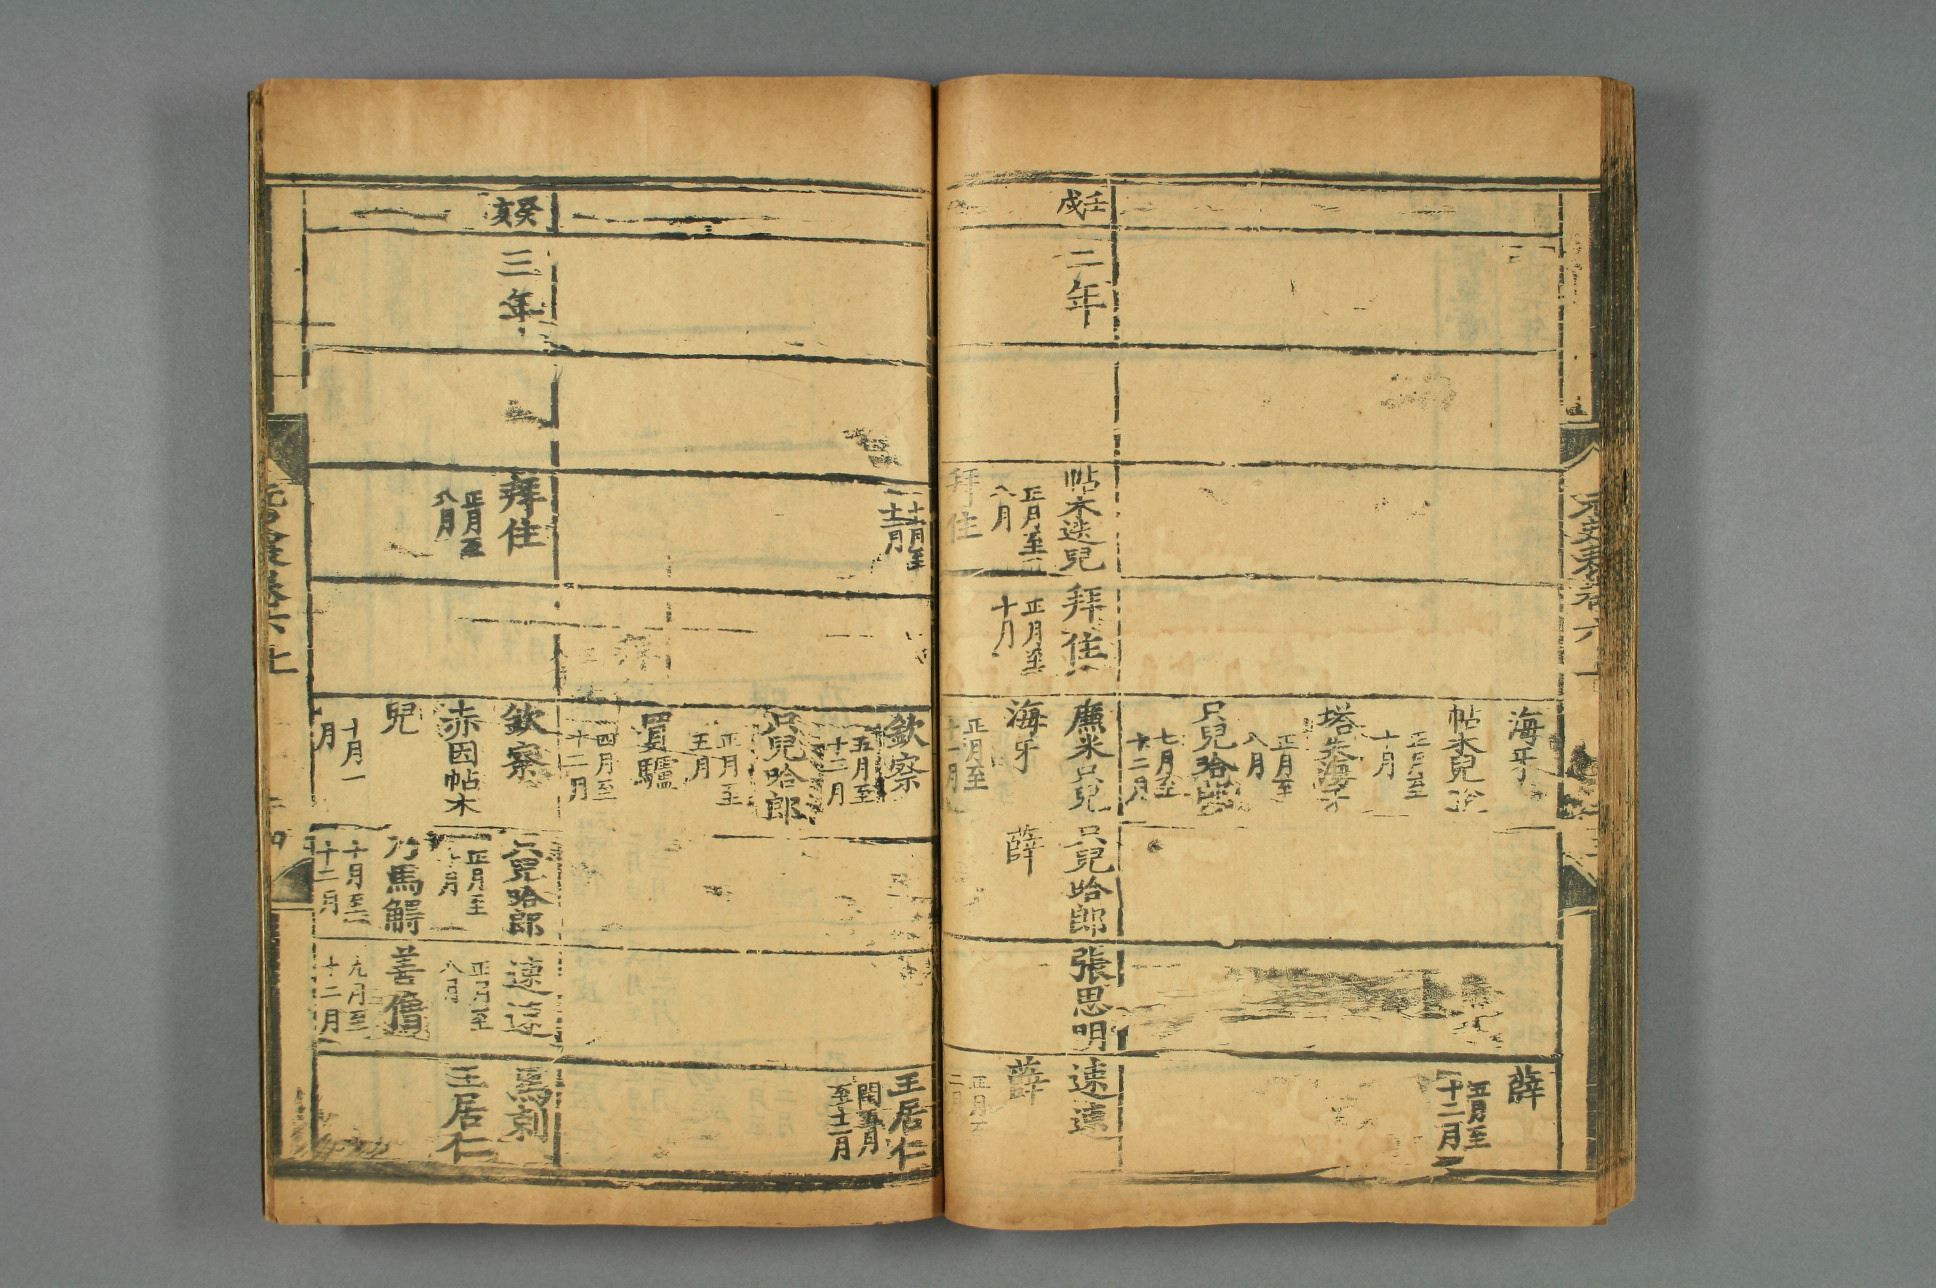 元史表卷六上
海牙
帖木兒
正月至
十月
塔失海牙
正月至
八月
只兒哈郎
七月至
十二月
薛
正月至
十二月
壬戌
二年
帖木迭兒
正月至
八月
拜住
拜住
正月至
十月
廉米只兒
海牙
正月至
十一月
只兒哈郎
薛
張思明
速速
薛
正月至
二月
十一月至
十二月
欽察
五月至
十二月
只兒哈郎
正月至
五月
買驢
四月至
十二月
王居仁
閏五月
至十二月
癸亥
三年
拜住
正月至
八月
欽察
赤因帖木
兒
十月一
月
只兒哈郎
正月至
十月
乃馬䚟
十月至
十二月
速速
正月至
八月
善僧
九月至
十二月
馬剌
王居仁